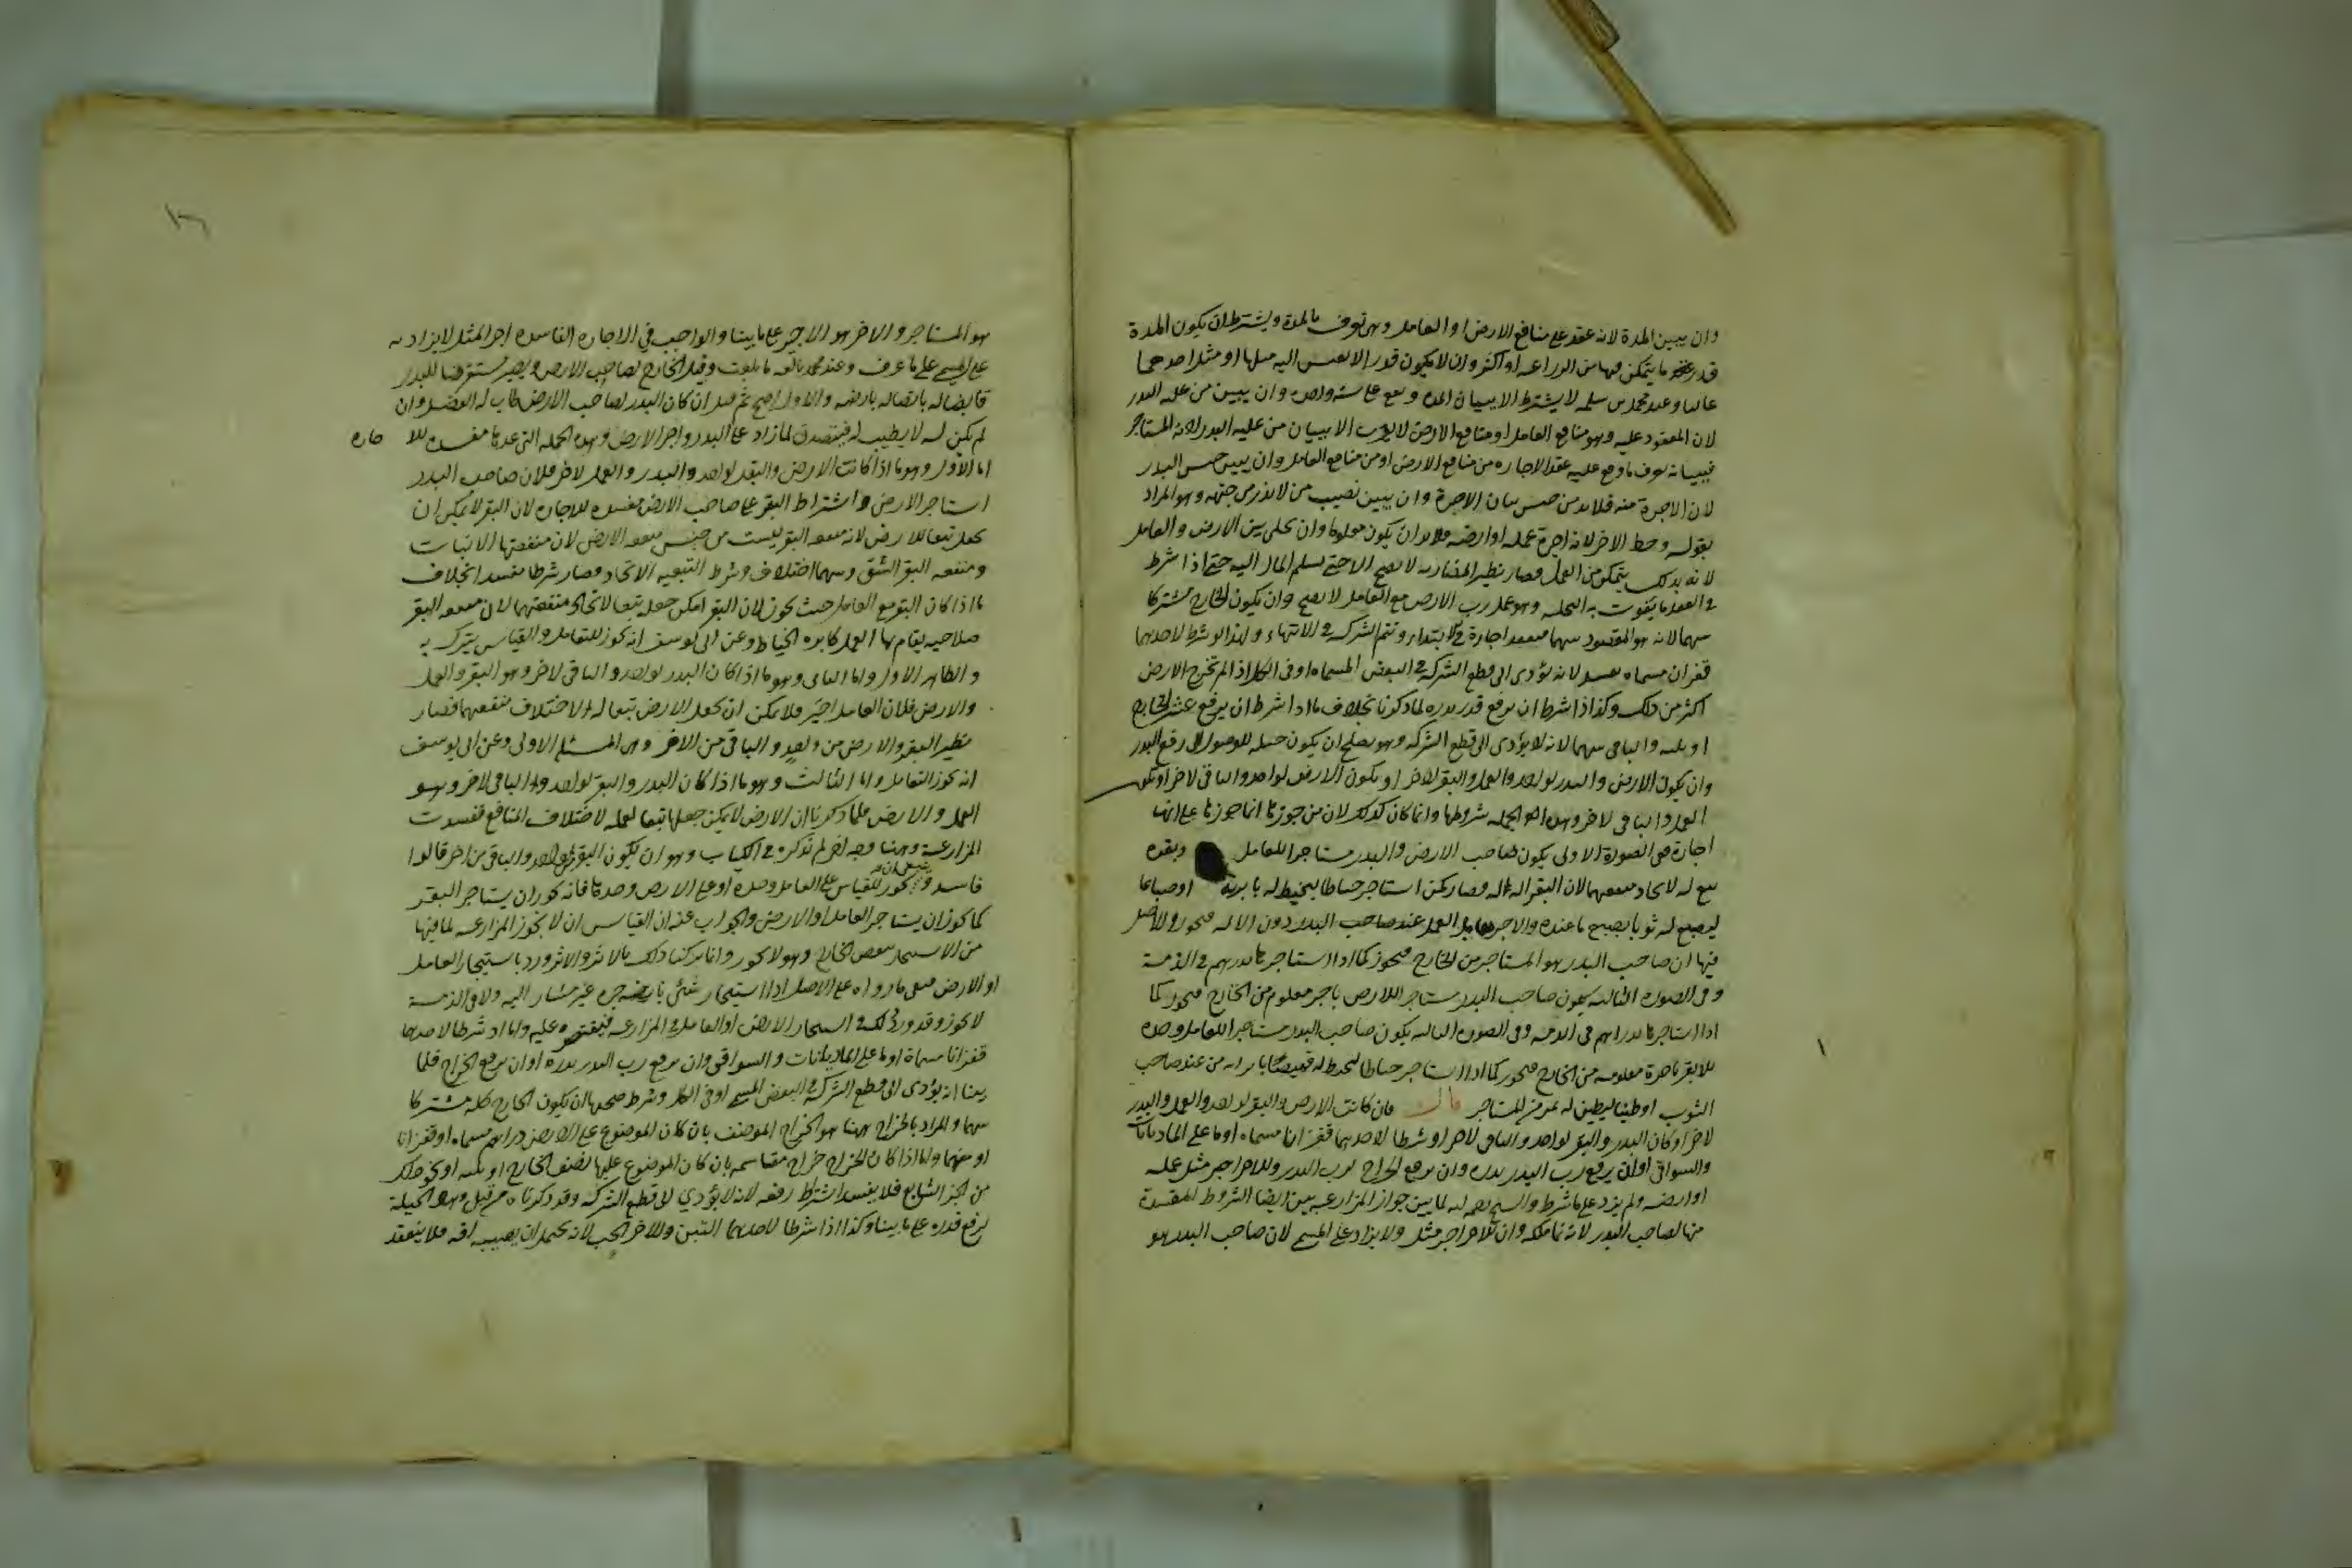 وان يبين المدة لانه عقد على منافع الارض او العامل وهى تعرف بالمدة ويشترط ان يكون المدة
قدر ما يتمكن فيها من الزراعه او اكثر وان لا يكون قدر الا يعيش اليه مثلها او مثل احدهما
غالبا وعند محمد بن سلمه لا يشترط الا بيان المده ويقع على سنه واحده وان يبين من عليه البدر
لان المعقود عليه وهو منافع العامل او منافع الارض لا يعرف الا ببيان من عليه البدر لانه المستاجر
فببيانه يعرف ما وقع عليه عقد الاجاره من منافع الارض او من منافع العامل وان يبين جنس البدر
لان الاجرة منه فلا بد من جنس بيان الاجرة وان يبين نصيب من لا بذر من جهته وهو المراد
بقوله وحظ الاخر لانه اجرة عمله او ارضه فلا بد ان يكون معلوما وان يخلى بين الارض والعامل
لانه بذلك يتمكن من العمل فصار نظير المضاربه لا يصح الا حتى يسلم المال اليه حتى اذا شرط
في العقد ما يفوت به التخليه وهو عمل رب الارض مع العامل لا يصح وان يكون الخارج مشتركا
بينهما لانه هو المقصود بينهما فينعقد اجارة في الابتداء وتتم الشركه في الانتهاء ولهذا لو شرط لاحدهما
قفزان مسماه يفسد لانه يؤدى الى قطع الشركه في البعض المسماه او فى الكل اذا لم تخرج الارض
اكثر من ذلك وكذا اذا شرطا ان يرفع قدر بدره لما ذكرنا بخلاف ما اذا شرط ان يرفع عشر الخارج
او ثلثه والباقى بينهما لانه لا يؤدى الى قطع الشركه وهو يصلح ان يكون حيله للوصول الى رفع البدر
وان يكون الارض والبدر لواحد والعمل والبقر لاخر او يكون الارض لواحد والباقى لاخر او يكون
العمل والباقى لاخر وهذه الجمله شروطها وانما كان كذلك لان من جوزها انما جوزها على انها
اجارة ففى الصورة الاولى يكون صاحب الارض والبدر مستاجرا للعامل وبقره
تبع له لاتحاد منفعتهما لان البقر اله له فصار كمن استاجر خياطا ليخيط له بابرته او صباغا
ليصبغ له ثوبا بصبغ ما عنده والاجر يقابل العمل عند صاحب البدر دون الاله فيجوز والاصل
فيها ان صاحب البدر هو المستاجر من الخارج فيجوز كما اذا استاجر بدرهم في الذمة
وفى الصوره الثانيه يكون صاحب البدر مستاجرا للارض باجر معلوم من الخارج فيجوز كما
اذا استاجرها بدراهم فى الذمه وفى الصوره الثالثه يكون صاحب البدر مستاجرا للعامل وحده
بلا بقر باجرة معلومه من الخارج فيجوز كما اذا استاجر خياطا ليخيط له قميصا بابره من عند صاحب
الثوب او طيانا ليطين له بمر من المستاجر قال فان كانت الارض والبقر لواحد والعمل والبدر
لاخر او كان البدر والبقر لواحد والباقى لاخر او شرطا لاحدهما قفزانا مسماه او ما على الماديانات
والسواقى او ان يرفع رب البدر بدره وان يرفع الخراج لرب البدر وللاخر اجر مثل عمله
او ارضه ولم يزد على ما شرط لما بين جواز المزارعه بين ايضا الشروط المفسدة
منها لصاحب البدر لانه نما ملكه وان للاخر اجر مثل ولا يزاد على المسمى لان صاحب البدر هو
هو المستاجر والاخر هو الاجير على ما بينا والواجب فى الاجاره الفاسده اجر المثل لا يزاد به
على المسمى على ما عرف وعند محمد بالغه ما بلغت وقيل الخارج لصاحب الارض ويصير مستقرضا للبدر
قابضا له باتصاله بارضه والاول اصح ثم قيل ان كان البدر لصاحب الارض طاب له الفضل وان
لم يكن له لا يطيب له فيتصدق لما زاد على البدر واجر الارض وهذه الجمله التى عدها مفسده للا جاره
اما الاول وهو ما اذا كانت الارض والبقر لواحد والبدر والعمل لاخر فلان صاحب البدر
استاجر الارض واشتراط البقر على صاحب الارض مفسده للاجاره لان البقر لا يمكن ان
يجعل تبعا للارض لانه منفعه البقر ليست من جنس منفعه الارض لان منفعتها الانبات
ومنفعه البقر الشق وبينهما اختلاف وشرط التبعيه الاتحاد فصار شرطا مفسدا بخلاف
ما اذا كان البقر مع العامل حيث يجوز لان البقر امكن جعله تبعا لاتحاد منفعتهما لان منفعه البقر
صلاحيه يقام بها العمل كابره الخياط وعن ابى يوسف انه يجوز للتعامل والقياس يترك به
والظاهر الاول واما الثانى وهو ما اذا كان البدر لواحد والباقى لاخر وهو البقر والعمل
والارض فلان العامل اجير فلا يمكن ان يجعل الارض تبعا له لاختلاف منفعتهما فصار
نظير البقر والارض من واحد والباقى من الاخر وهى المسئله الاولى وعن ابى يوسف
انه يجوز للتعامل واما الثالث وهو ما اذا كان البدر والبقر لواحد والباقى لاخر وهو
العمل والارض فلما ذكرنا ان الارض لا يمكن جعلها تبعا لعمله لاختلاف المنافع ففسدت
المزارعة وهنا وجه اخر لم تذكره في الكتاب وهو ان يكون البقر لواحد والباقى من اخر قالوا
فاسد ويجوز للقياس على العامل وحده او على الارض وحدها فانه يجوز ان يستاجر البقر
كما يجوز ان يستاجر العامل او الارض والجواب عنه ان القياس ان لا يجوز المزارعه لما فيها
من الاستيجار ببعض الخارج وهو لا يجوز وانما تركنا ذلك بالاثر والاثر ورد باستيجار العامل
او الارض فبقى ما وراه على الاصل اذ استيجار شئ باجره غير مشار اليه ولا فى الذمة
لا يجوز وقد ورد ذلك في استيجار الارض او العامل في المزارعه فيقتصر عليه واما اذا شرطا لاحدهما
قفزانا مسماة او ما على الماديانات والسواقى وان يرفع رب البدر بدره او ان يرفع الخراج فلما
بينا انه يؤدى الى قطع الشركه في البعض المسمى او فى الكل وشرط صحتها ان يكون الخارج كله مشتركا
بينهما والمراد بالخراج هنا هو الخراج الموظف بان كان الموضوع على الارض دراهم مسماه او قفزانا
واما اذا كان الخراج خراج مقاسمه بان كان الموضوع عليها نصف الخارج او ثلثه او نحو ذلك
من الجزء الشايع فلا يفسد اشتراط رفعه لانه لا يؤدي الى قطع الشركه وقد ذكرناه من قبل وهو الحيلة
لرفع قدره على ما بينا وكذا اذا شرطا لاحدهما التبن وللاخر الحب لانه يحتمل ان يصيبه افه فلا ينعقد